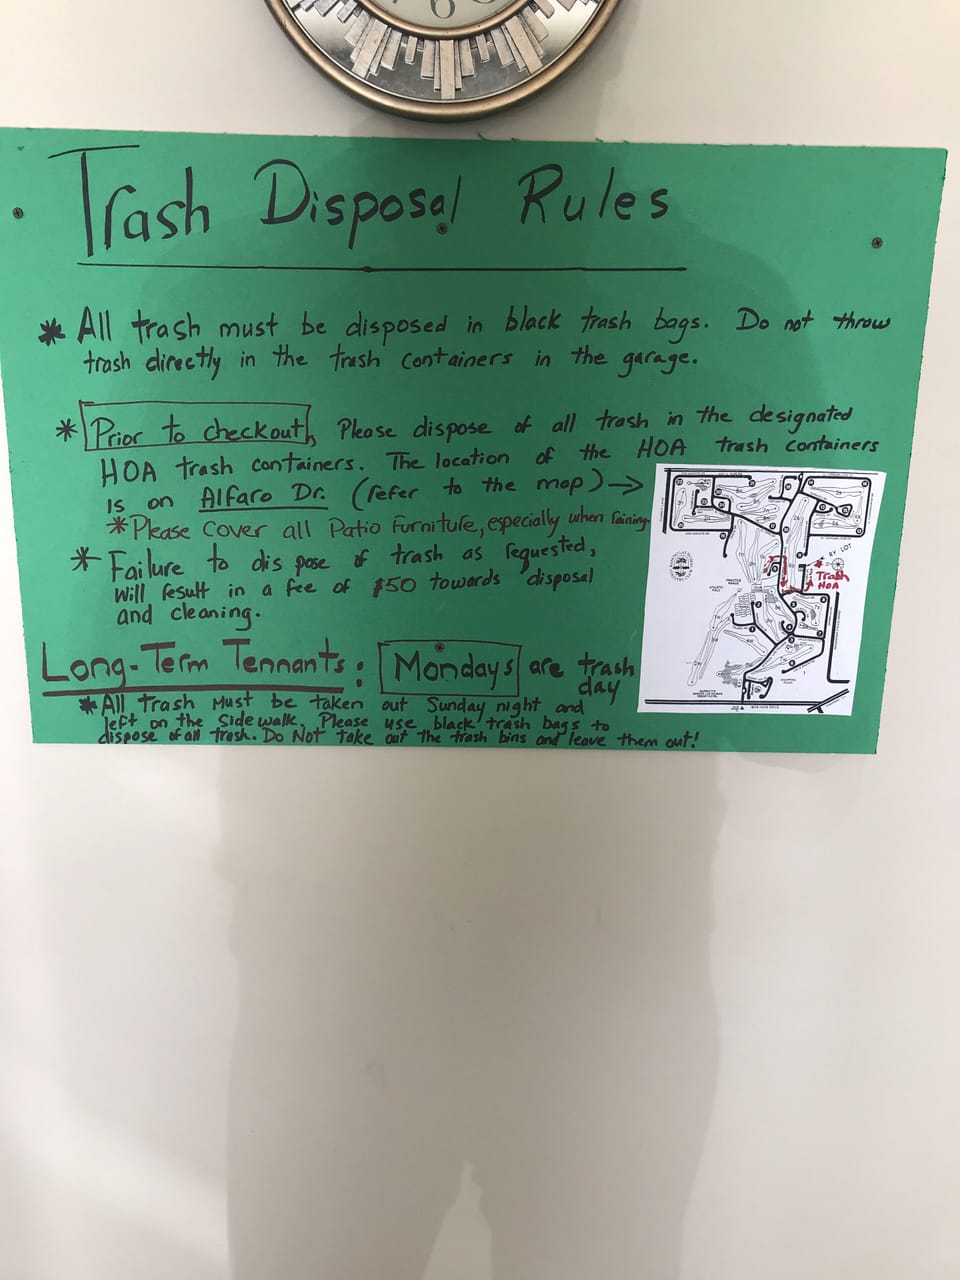 6
Trash Disposal Rules
* All trash must be disposed in black trash bags. Do not throw
trash directly in the trash containers in the garage.
* Prior to checkout, Please dispose of all trash in the designated
HOA trash containers. The location of the HOA trash containers
is on Alfaro Dr. (refer to the map) →
* Please cover all Patio furniture, especially when raining.
* Failure to dispose of trash as requested,
will result in a fee of $50 towards disposal
and cleaning.
RV LOT
Trash
HOA
Long-Term Tennants: Mondays are trash
day
* All Trash Must be taken out Sunday night and
left on the Sidewalk. Please use black trash bags to
dispose of all trash. Do Not take out the trash bins and leave them out!